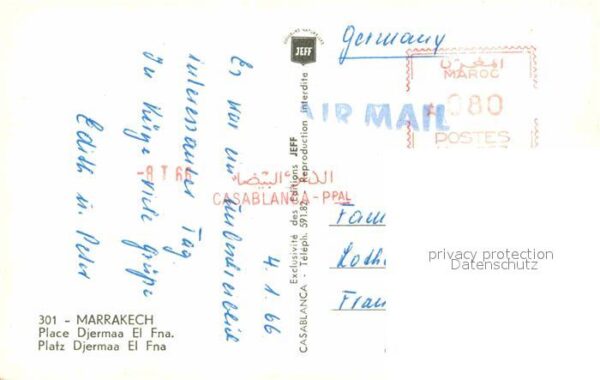 Germany
المغرب
MAROC
080
POSTES
AIR MAIL
JEFF
4.1.66
Es war ein
interessanter Tag.
In Kürze viele Grüße
Edith u. Peter
-8 1 66
الدار البيضاء
CASABLANCA-PPAL
Exclusivité des Editions JEFF
CASABLANCA - Téléph. 591.82 Reproduction interdite
Fam
Loth
Fran
privacy protection
Datenschutz
301 - MARRAKECH
Place Djermaa El Fna.
Platz Djermaa El Fna